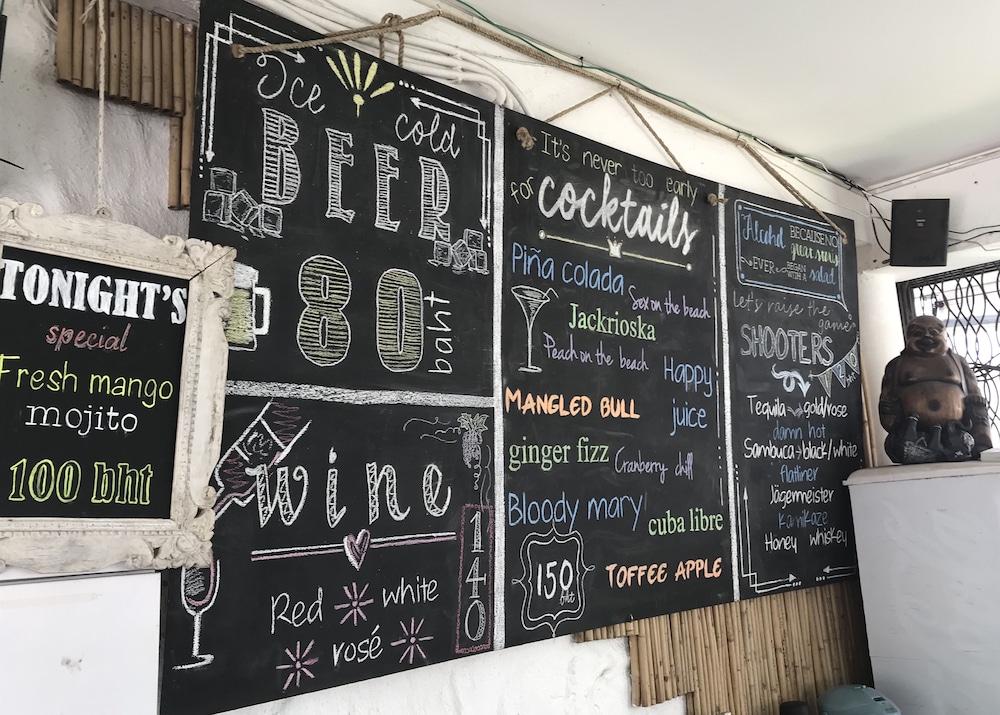 TONIGHT'S
special
Fresh mango
mojito
100 bht
Ice
cold
BEER
80
baht
wine
140
Red
white
rosé
It's never too early
for cocktails
Piña colada
Sex on the beach
Jackrioska
Peach on the beach
Happy
juice
MANGLED BULL
ginger fizz
Cranberry chill
Bloody mary
cuba libre
150
bht
TOFFEE APPLE
Alcohol BECAUSE NO
great story
EVER BEGAN
WITH A salad
let's raise the
game
SHOOTERS
Tequila gold/rose
damn hot
Sambuca black/white
flatliner
Jägermeister
kamikaze
Honey whiskey